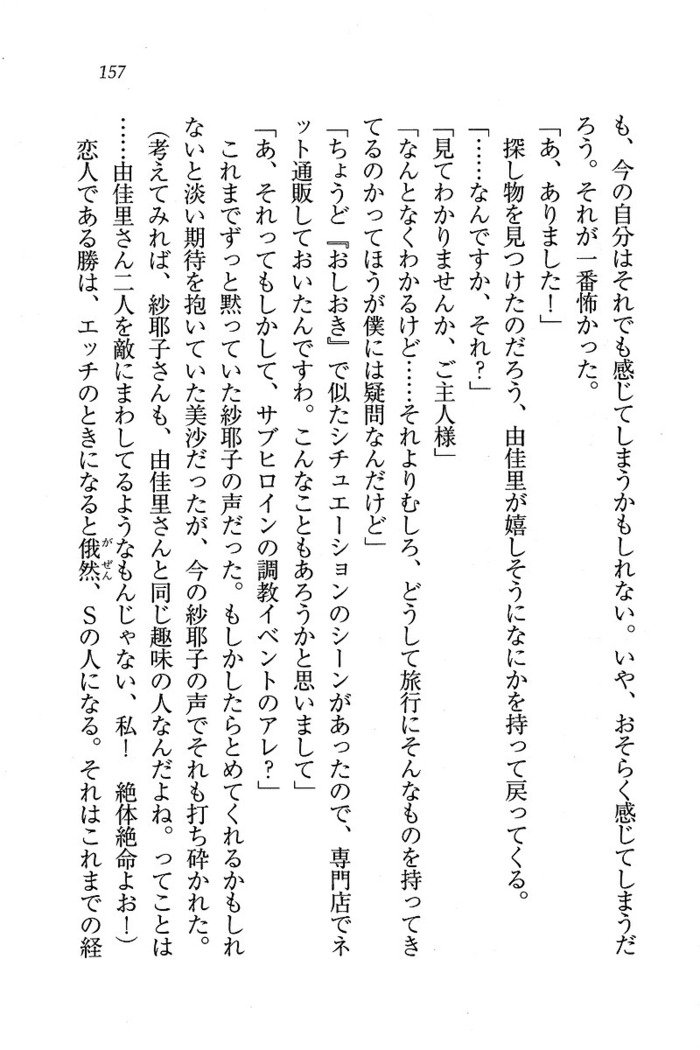 157
も、今の自分はそれでも感じてしまうかもしれない。いや、おそらく感じてしまうだ
ろう。それが一番怖かった。
「あ、ありました！」
探し物を見つけたのだろう、由佳里が嬉しそうになにかを持って戻ってくる。
「……なんですか、それ？」
「見てわかりませんか、ご主人様」
「なんとなくわかるけど……それよりむしろ、どうして旅行にそんなものを持ってき
てるのかってほうが僕には疑問なんだけど」
「ちょうど『おしおき』で似たシチュエーションのシーンがあったので、専門店でネ
ット通販しておいたんですわ。こんなこともあろうかと思いまして」
「あ、それってもしかして、サブヒロインの調教イベントのアレ？」
これまでずっと黙っていた紗耶子の声だった。もしかしたらとめてくれるかもしれ
ないと淡い期待を抱いていた美沙だったが、今の紗耶子の声でそれも打ち砕かれた。
（考えてみれば、紗耶子さんも、由佳里さんと同じ趣味の人なんだよね。ってことは
……由佳里さん二人を敵にまわしてるようなもんじゃない、私！　絶体絶命よお！）
恋人である勝は、エッチのときになると俄然、Ｓの人になる。それはこれまでの経
がぜん